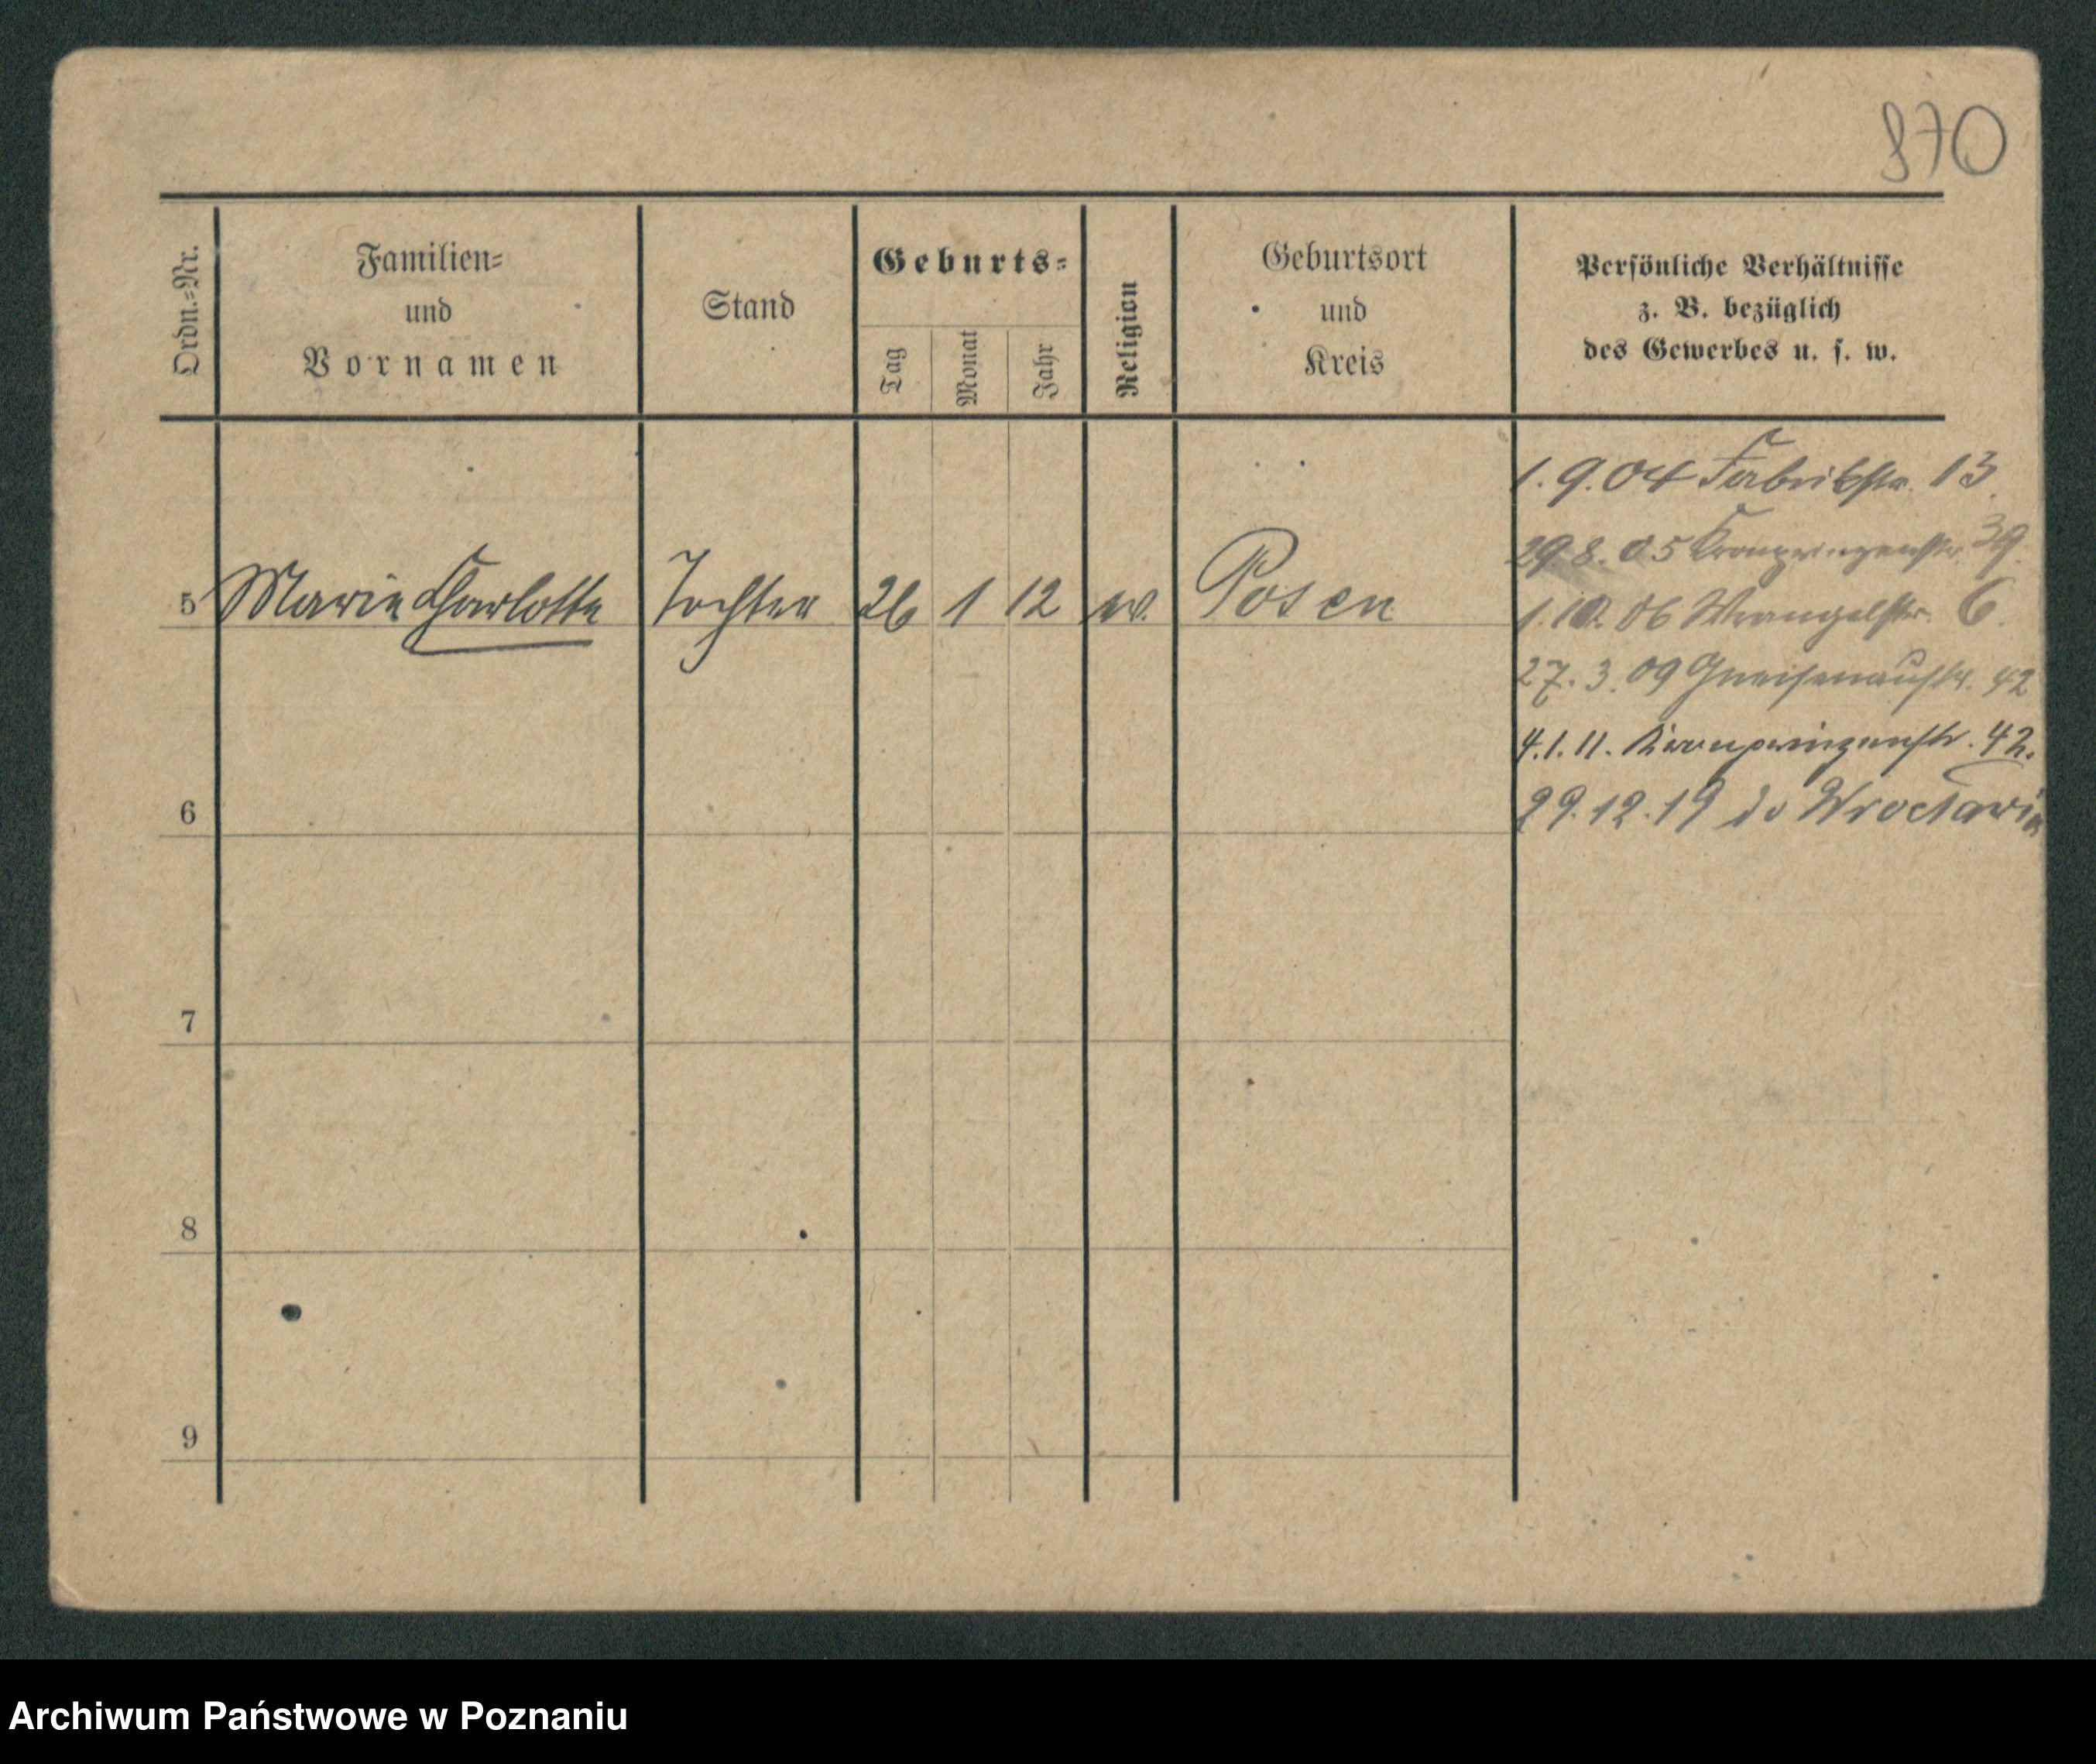 870
Ordn.=Nr.
Familien=
und
Vornamen
Stand
Geburts=
Tag
Monat
Jahr
Religion
Geburtsort
und
Kreis
Persönliche Verhältnisse
z. B. bezüglich
des Gewerbes u. s. w.
1.9.04 Fabrikstr. 13.
29.8.05 Kronprinzenstr. 39.
5 Marie Charlotte Tochter 26 1 12 ev. Posen
1.10.06 Wrangelstr. 6.
27.3.09 Gneisenaustr. 42
4.1.11. Kronprinzenstr. 42.
6
29.12.19 do Wrocławia
7
8
9
Archiwum Państwowe w Poznaniu